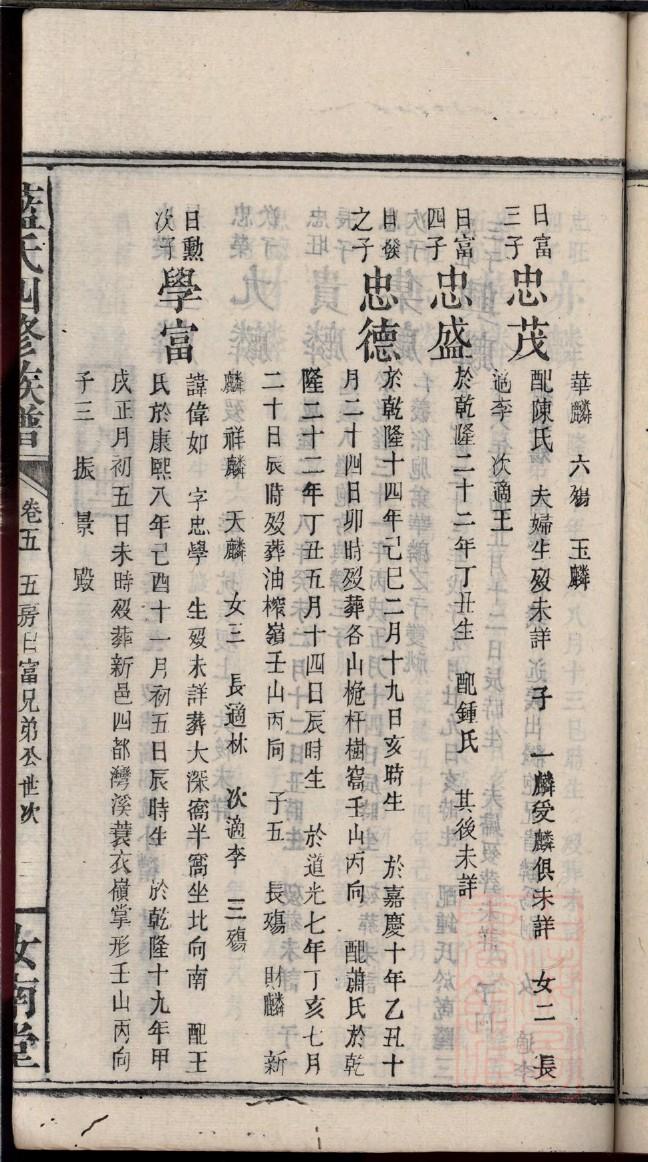 華麟 六殤 玉麟
日富三子 忠茂 配陳氏 夫婦生歿未詳 子 一麟受麟俱未詳 女二 長
適李 次適王
日富四子 忠盛 於乾隆二十二年丁丑生 配鍾氏 其後未詳
之子 忠德 於乾隆十四年己巳二月十九日亥時生 於嘉慶十年乙丑十
月二十四日卯時歿葬各山桅杆樹窩壬山丙向 配蕭氏於乾
隆二十二年丁丑五月十四日辰時生 於道光七年丁亥七月
二十日辰時歿葬油榨嶺壬山丙向 子五 長殤 財麟 新
麟 祥麟 天麟 女三 長適林 次適李 三殤
日勲次子 學富 諱偉如 字忠學 生歿未詳葬大深窩半窩坐北向南 配王
氏於康熙八年己酉十一月初五日辰時生 於乾隆十九年甲
戌正月初五日未時歿葬新邑四都灣溪蓑衣嶺掌形壬山丙向
子三 振 景 殿
藍氏四修族譜 卷五 五房日富兄弟公世次 汝南堂